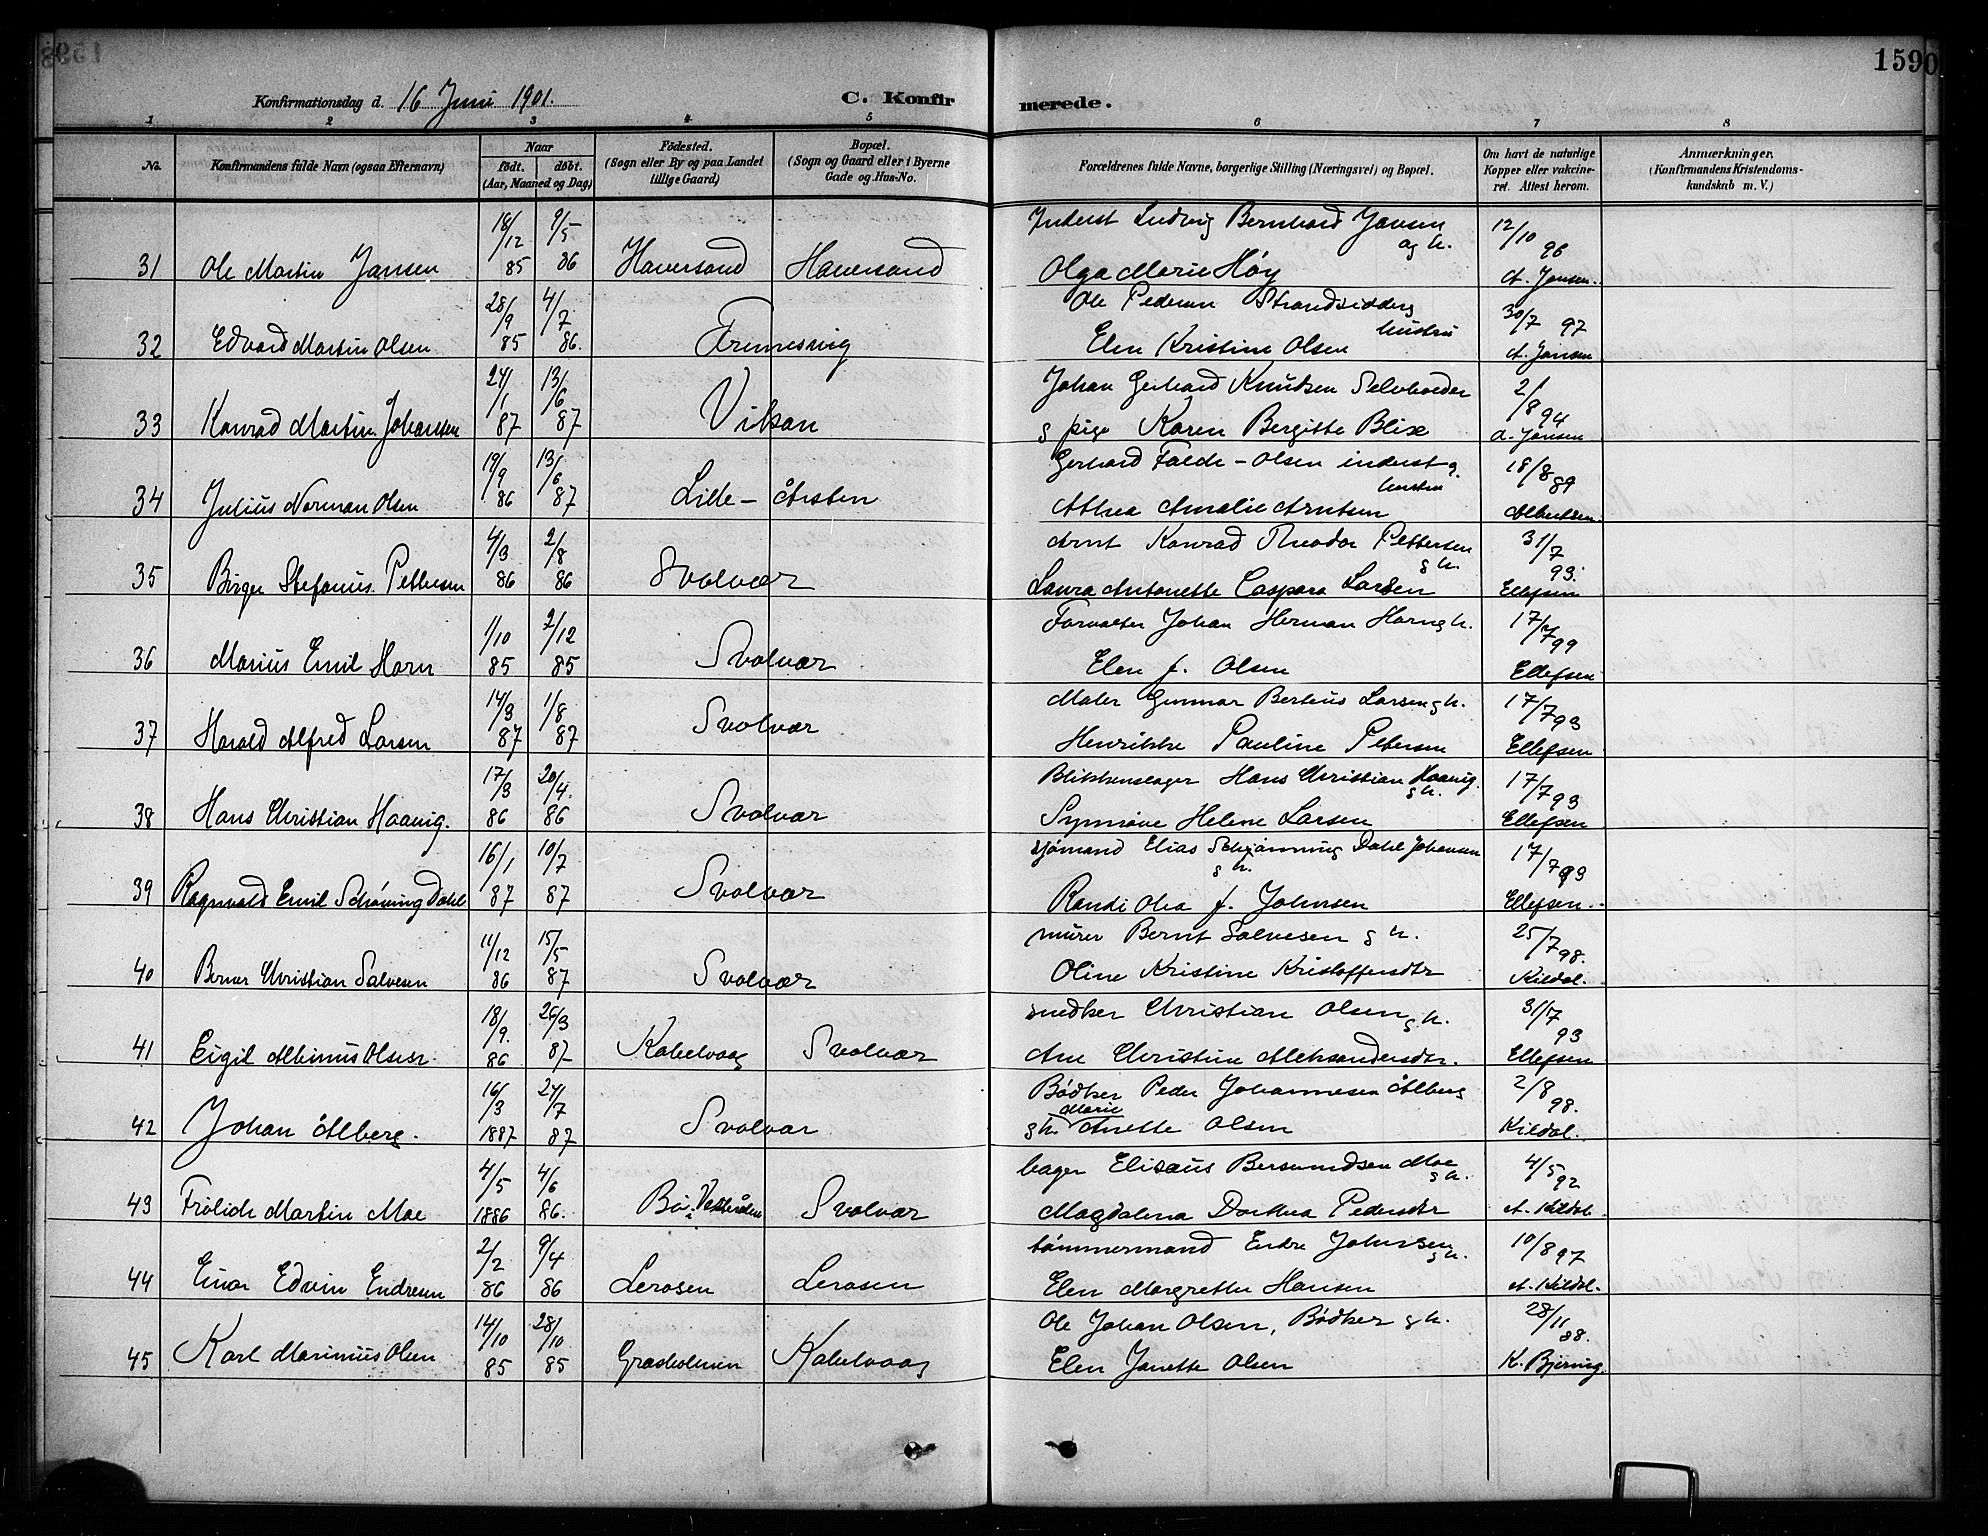 1590
Konfirmationsdag d. 16 Juni 1901. C. Konfirmerede.
1 2 3 4 5 6 7 8
No. Konfirmandens fulde Navn (ogsaa Efternavn) Naar født. døbt. (Aar, Maaned og Dag) Fødested. (Sogn eller By og paa Landet tillige Gaard) Bopæl. (Sogn og Gaard eller i Byerne Gade og Hus-No. Forældrenes fulde Navne, borgerlige Stilling (Næringsvei) og Bopæl. Om havt de naturlige Kopper eller vakcineret. Attest herom. Anmærkninger. (Konfirmandens Kristendomskundskab m. V.)
18/12 9/5 Inderst Ludvig Bernhard Jansen og h. 12/10 96
31 Ole Martin Jansen 85 86 Haversand Haversand Olga Marie Høy A. Jansen
28/9 4/7 Ole Pedersen Strandsidder g hustru 30/7 97
32 Edvard Martin Olsen 85 86. Elen Kristine Olsen A. Jansen
24/1 13/6 Johan Gerhard Knudsen 2/8 94
33 Konrad Martin Johansen 87 87 Vikan g pige Karen Bergitte Blix A. Jansen
19/9 13/6 Gerhard Falde-Olsen inderst g. hustru 18/8 89
34 Julius Norman Olsen 86 87 Lille- Amalie Arntsen Albertsen
4/3 2/8 Arnt Konrad Theodor Pettersen g h. 31/7 93.
35 Birger Stefanus Pettersen 86 86 Svolvær Laura Antonette Caspara Larsen Ellefsen
1/10 2/12 Forvalter Johan Herman Horn g h. 17/7 99
36 Marius Emil Horn 85 85 Svolvær Elen f. Olsen Ellefsen
14/3 1/8 Maler Gunnar Berteus Larsen g h. 17/7 93
37 Harald Alfred Larsen 87 87 Svolvær Henrikke Pauline Petersen Ellefsen
17/3 20/4. Blikkenslager Hans Christian Haavig g h. 17/7 93
38 Hans Christian Haavig. 86 86 Svolvær Synnøve Helene Larsen Ellefsen
16/1 10/7 sjømand Elias Schjønning Dahl Johansen g h. 17/7 93
39 Ragnvald Emil Schøning Dahl 87 87 Svolvær Randi Olea f. Johnsen Ellefsen
11/12 15/5 murer Bernt Salvesen g h. 25/7 98.
40 Berner Christian Salvesen 86 87 Svolvær Oline Kristine Kristoffersdtr Kildal.
18/9. 26/3 snedker Christian Olsen g h. 31/7 93
41 Eigil Albinus Olsen 86 87 Kabelvaag Svolvær Ane Christine Aleksandersdtr. Ellefsen
16/3 24/7 Bødker Peder Johannesen Ålberg 2/8 98.
42 Johan Ålberg. 1887 87 Svolvær g h. Marie Anette Olsen Kildal.
4/5 4/6 bager Elisæus Bersvendsen Moe g h. 4/5 92
43 Frölich Martin Moe 1886 86. Bø. Vesterålen Svolvær Magdalena Dorthea Pedersdtr A. Kildal.
2/2 9/4 tømmermand Endre Johnsen g h. 10/8 97
44 Einar Edvin Endresen 86 86 Lerosen Lerosen Elen Margrethe Hansen A. Kildal.
14/10 28/10 Ole Johan Olsen, Bødker g h. 28/11 88.
45 Karl Marinius Olsen 85 85 Græsholmen Kabelvaag Elen Janette Olsen K. Bjering.